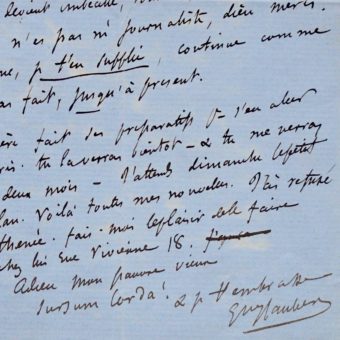 devient imbécile,
n'es pas ni journaliste, dieu merci.
je t'en supplie, continue comme
as fait, jusqu'à présent.
fait des préparatifs p. s'en aller
tu la verras bientôt – & tu me verras
deux mois – J'attends dimanche le petit
Voilà toutes mes nouvelles. J'ai refusé
fais-moi le plaisir de le faire
chez lui rue Vivienne 18.
Adieu mon pauvre vieux
Sursum corda! & je t'embrasse
Gve Flaubert